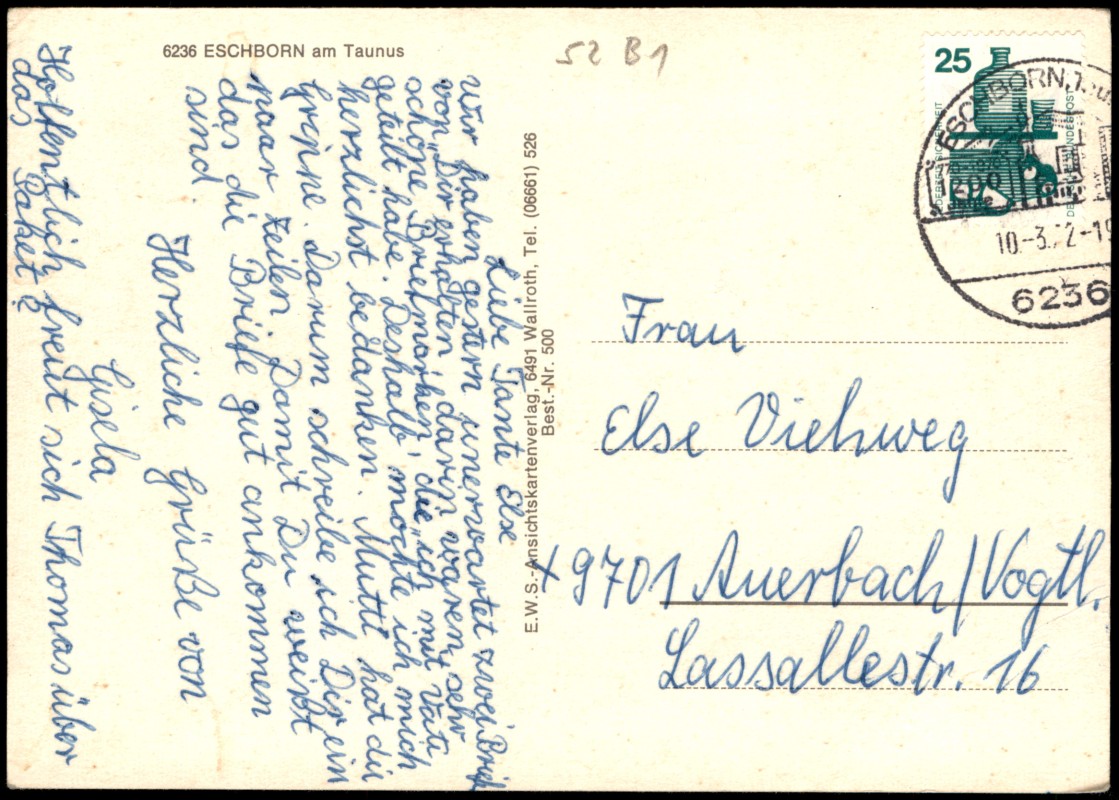 6236 ESCHBORN am Taunus
52 B1
25
DEUTSCHE BUNDESPOST
ESCHBORN, Taun
10.-3.72-19
6236
Liebe Tante Else
Wir haben gestern unerwartet zwei Brief
von Dir erhalten darin waren sehr
schöne Briefmarken, die ich mit Vati
geteilt habe. Deshalb möchte ich mich
herzlichst bedanken. Mutti hat die
Grippe. Darum schreibe ich Dir ein
paar Zeilen Damit Du weißt
das die Briefe gut ankommen
sind.
Herzliche Grüße von
Gisela
Hoffentlich freut sich Thomas über
das Paket?
E.W.S.-Ansichtskartenverlag, 6491 Wallroth, Tel. (06661) 526
Best.-Nr. 500
Frau
Else Viehweg
x9701 Auerbach/Vogtl.
Lassallestr. 16